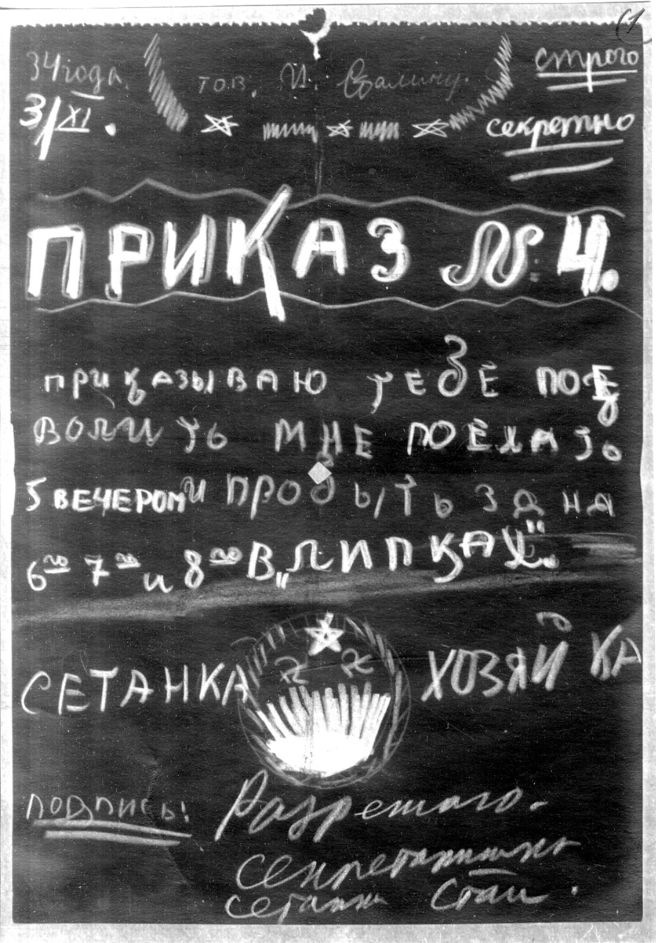 1
34 года.
3/XI.
тов. И. Сталину.
строго
секретно
ПРИКАЗ № 4.
приказываю тебе поз
волить мне поехать
5 вечером и пробыть здн
6го 7го и 8го в „Липках".
СЕТАНКА ХОЗЯЙКА
подпись:
Разрешаю.
секретаришка
сетанки Стал.